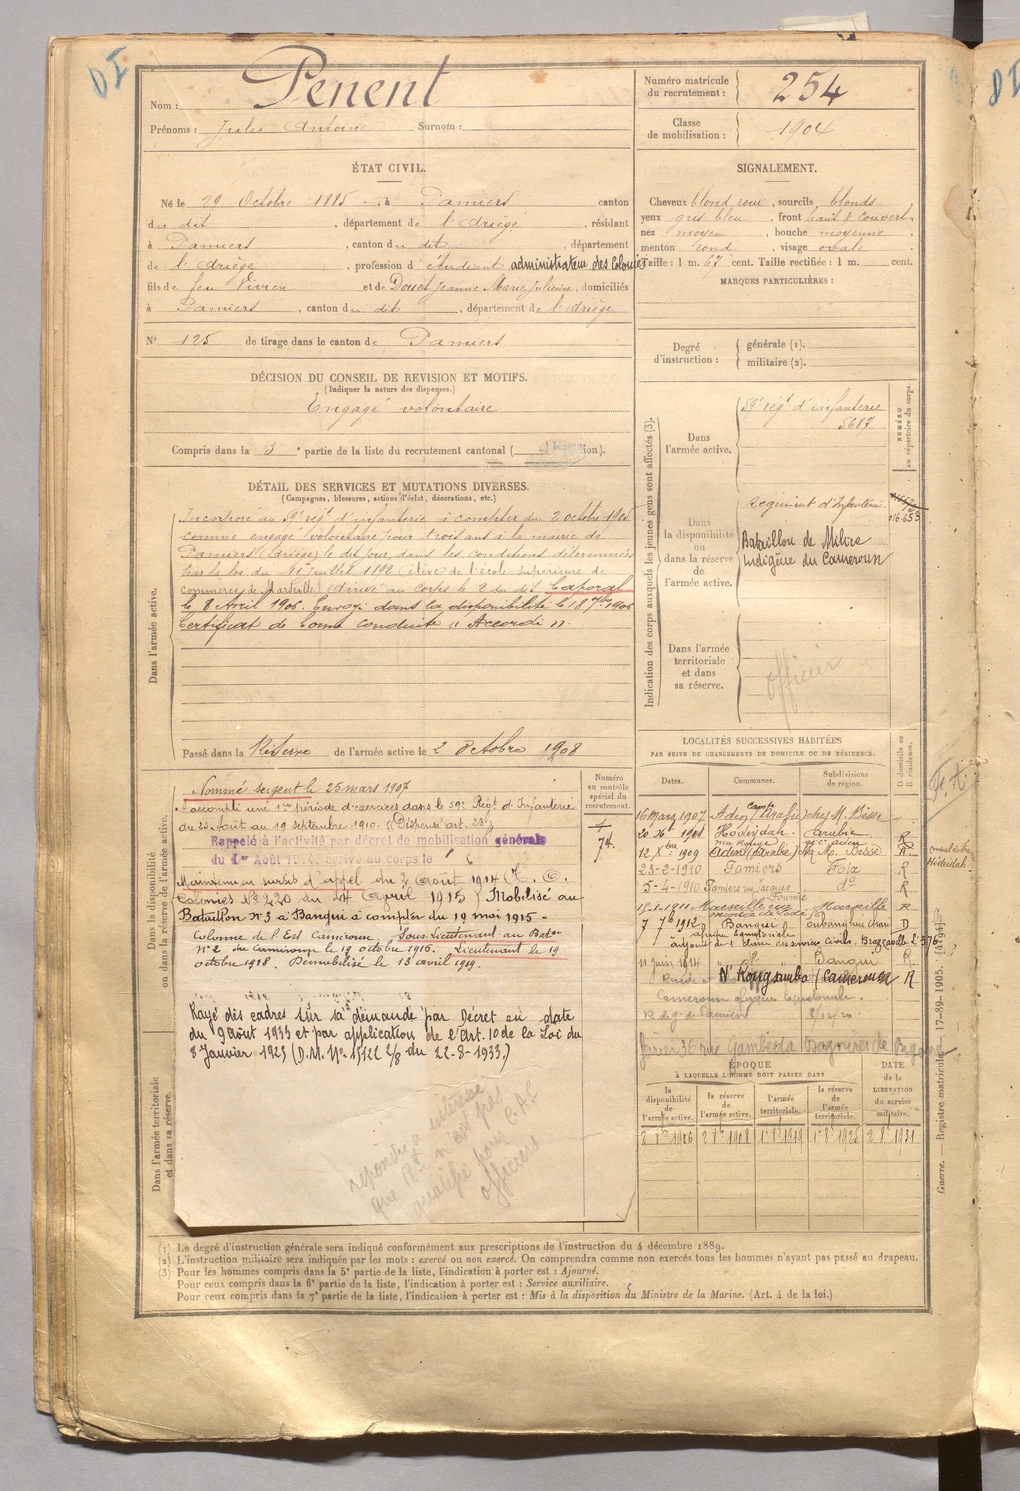 Nom : Penent
Prénoms : Jules Antoine Surnom :
Numéro matricule du recrutement : 254
Classe de mobilisation : 1904
ÉTAT CIVIL.
Né le 29 Octobre 1885, à Pamiers canton
du dit, département de l'Ariège, résidant
à Pamiers, canton du dit, département
de l'Ariège, profession d'étudiant administrateur des Colonies
fils de feu Vivien et de Doucet Jeanne Marie Julienne, domiciliés
à Pamiers, canton du dit, département de l'Ariège
N° 125 de tirage dans le canton de Pamiers
SIGNALEMENT.
Cheveux blond roux, sourcils blonds
yeux gris bleu, front haut & couvert
nez moyen, bouche moyenne
menton rond, visage ovale
Taille : 1 m. 67 cent. Taille rectifiée : 1 m. cent.
MARQUES PARTICULIÈRES :
Degré d'instruction : générale (1). militaire (2).
DÉCISION DU CONSEIL DE REVISION ET MOTIFS.
(Indiquer la nature des dispenses.)
Engagé volontaire
Compris dans la 3e partie de la liste du recrutement cantonal ( tion).
DÉTAIL DES SERVICES ET MUTATIONS DIVERSES.
(Campagnes, blessures, actions d'éclat, décorations, etc.)
Dans l'armée active.
Incorporé au 59e régt d'infanterie à compter du 2 octobre 1905
comme engagé volontaire pour trois ans à la mairie de
Pamiers (Ariège) le dit jour, dans les conditions déterminées
par la loi du juillet 1892 (élève de l'école supérieure de
commerce de Marseille) arrivé au corps le 2 du dit. Caporal
le 8 Avril 1906. Envoyé dans la disponibilité le 18 7bre 1906
Certificat de bonne conduite " Accordé ".
Passé dans la Réserve de l'armée active le 2 Octobre 1908
Dans la disponibilité ou dans la réserve de l'armée active.
Nommé sergent le 25 mars 1907
a accompli une 1re période d'exercices dans le 59e Régt d'Infanterie
du Août au 19 septembre 1910. (Dispensé art. 23)
Rappelé à l'activité par décret de mobilisation générale
du 1er Août 1914, arrivé au corps le
Maintenu en sursis d'appel du 2 Août 1914
Colonies N° 220 du Avril 1915) Mobilisé au
Bataillon n°3 à Bangui à compter du 19 mai 1915 -
Colonne de l'Est Cameroun. Sous-Lieutenant au Baton
n°2 du Cameroun le 19 octobre 1916. Lieutenant le 19
octobre 1918. Démobilisé le 13 avril 1919.
Rayé des cadres sur sa demande par Décret en date
du 9 août 1933 et par application de l'Art. 10 de la Loi du
8 Janvier 1925 (D.M. N° 15122 2/8 du 22-8-1933)
Dans l'armée territoriale et dans sa réserve.
que n'est pas
qualifié pour
officiers
Numéro au contrôle spécial du recrutement.
74
Indication des corps auxquels les jeunes gens sont affectés (3).
NUMÉRO au répertoire du corps.
Dans l'armée active.
59e régt d'infanterie
5687
Dans la disponibilité ou dans la réserve de l'armée active.
Régiment d'Infanterie
Bataillon de Milice
Indigène du Cameroun
Dans l'armée territoriale et dans sa réserve.
officier
LOCALITÉS SUCCESSIVES HABITÉES
PAR SUITE DE CHANGEMENTS DE DOMICILE OU DE RÉSIDENCE.
Dates. Communes. Subdivisions de région. D domicile ou R résidence.
16 Mars 1907 Aden Camp (Arabie) chez M. Besse
1908 Hodeidah. Arabie R
12 Xbre 1909 Aden (Arabie) chez M. Besse R.
23-2-1910 Pamiers Foix R
5-4-1910 Pamiers rue Jacques Fournié do R
1911 Marseille Marseille R
7 7bre 1912 Bangui Oubangui Chari D
afrique Equatoriale
adjoint de 1e classe des services Civils. Brazzaville
11 juin 1914 Bangui R
N'Kongsamba (Cameroun) R
Cameroun
36 rue Gambetta Bagnères de Bigorre
ÉPOQUE
À LAQUELLE L'HOMME DOIT PASSER DANS
la disponibilité de l'armée active. la réserve de l'armée active. l'armée territoriale. la réserve de l'armée territoriale. DATE de la LIBÉRATION du service militaire.
2 8bre 1906 2 8bre 1908 1er 8bre 1919 1er 8bre 1925 2 8bre 1931
Guerre. — Registre matricule 17-89-1905. [4194]
(1) Le degré d'instruction générale sera indiqué conformément aux prescriptions de l'instruction du 4 décembre 1889.
(2) L'instruction militaire sera indiquée par les mots : exercé ou non exercé. On comprendra comme non exercés tous les hommes n'ayant pas passé au drapeau.
(3) Pour les hommes compris dans la 5e partie de la liste, l'indication à porter est : Ajourné.
Pour ceux compris dans la 6e partie de la liste, l'indication à porter est : Service auxiliaire.
Pour ceux compris dans la 7e partie de la liste, l'indication à porter est : Mis à la disposition du Ministre de la Marine. (Art. 4 de la loi.)